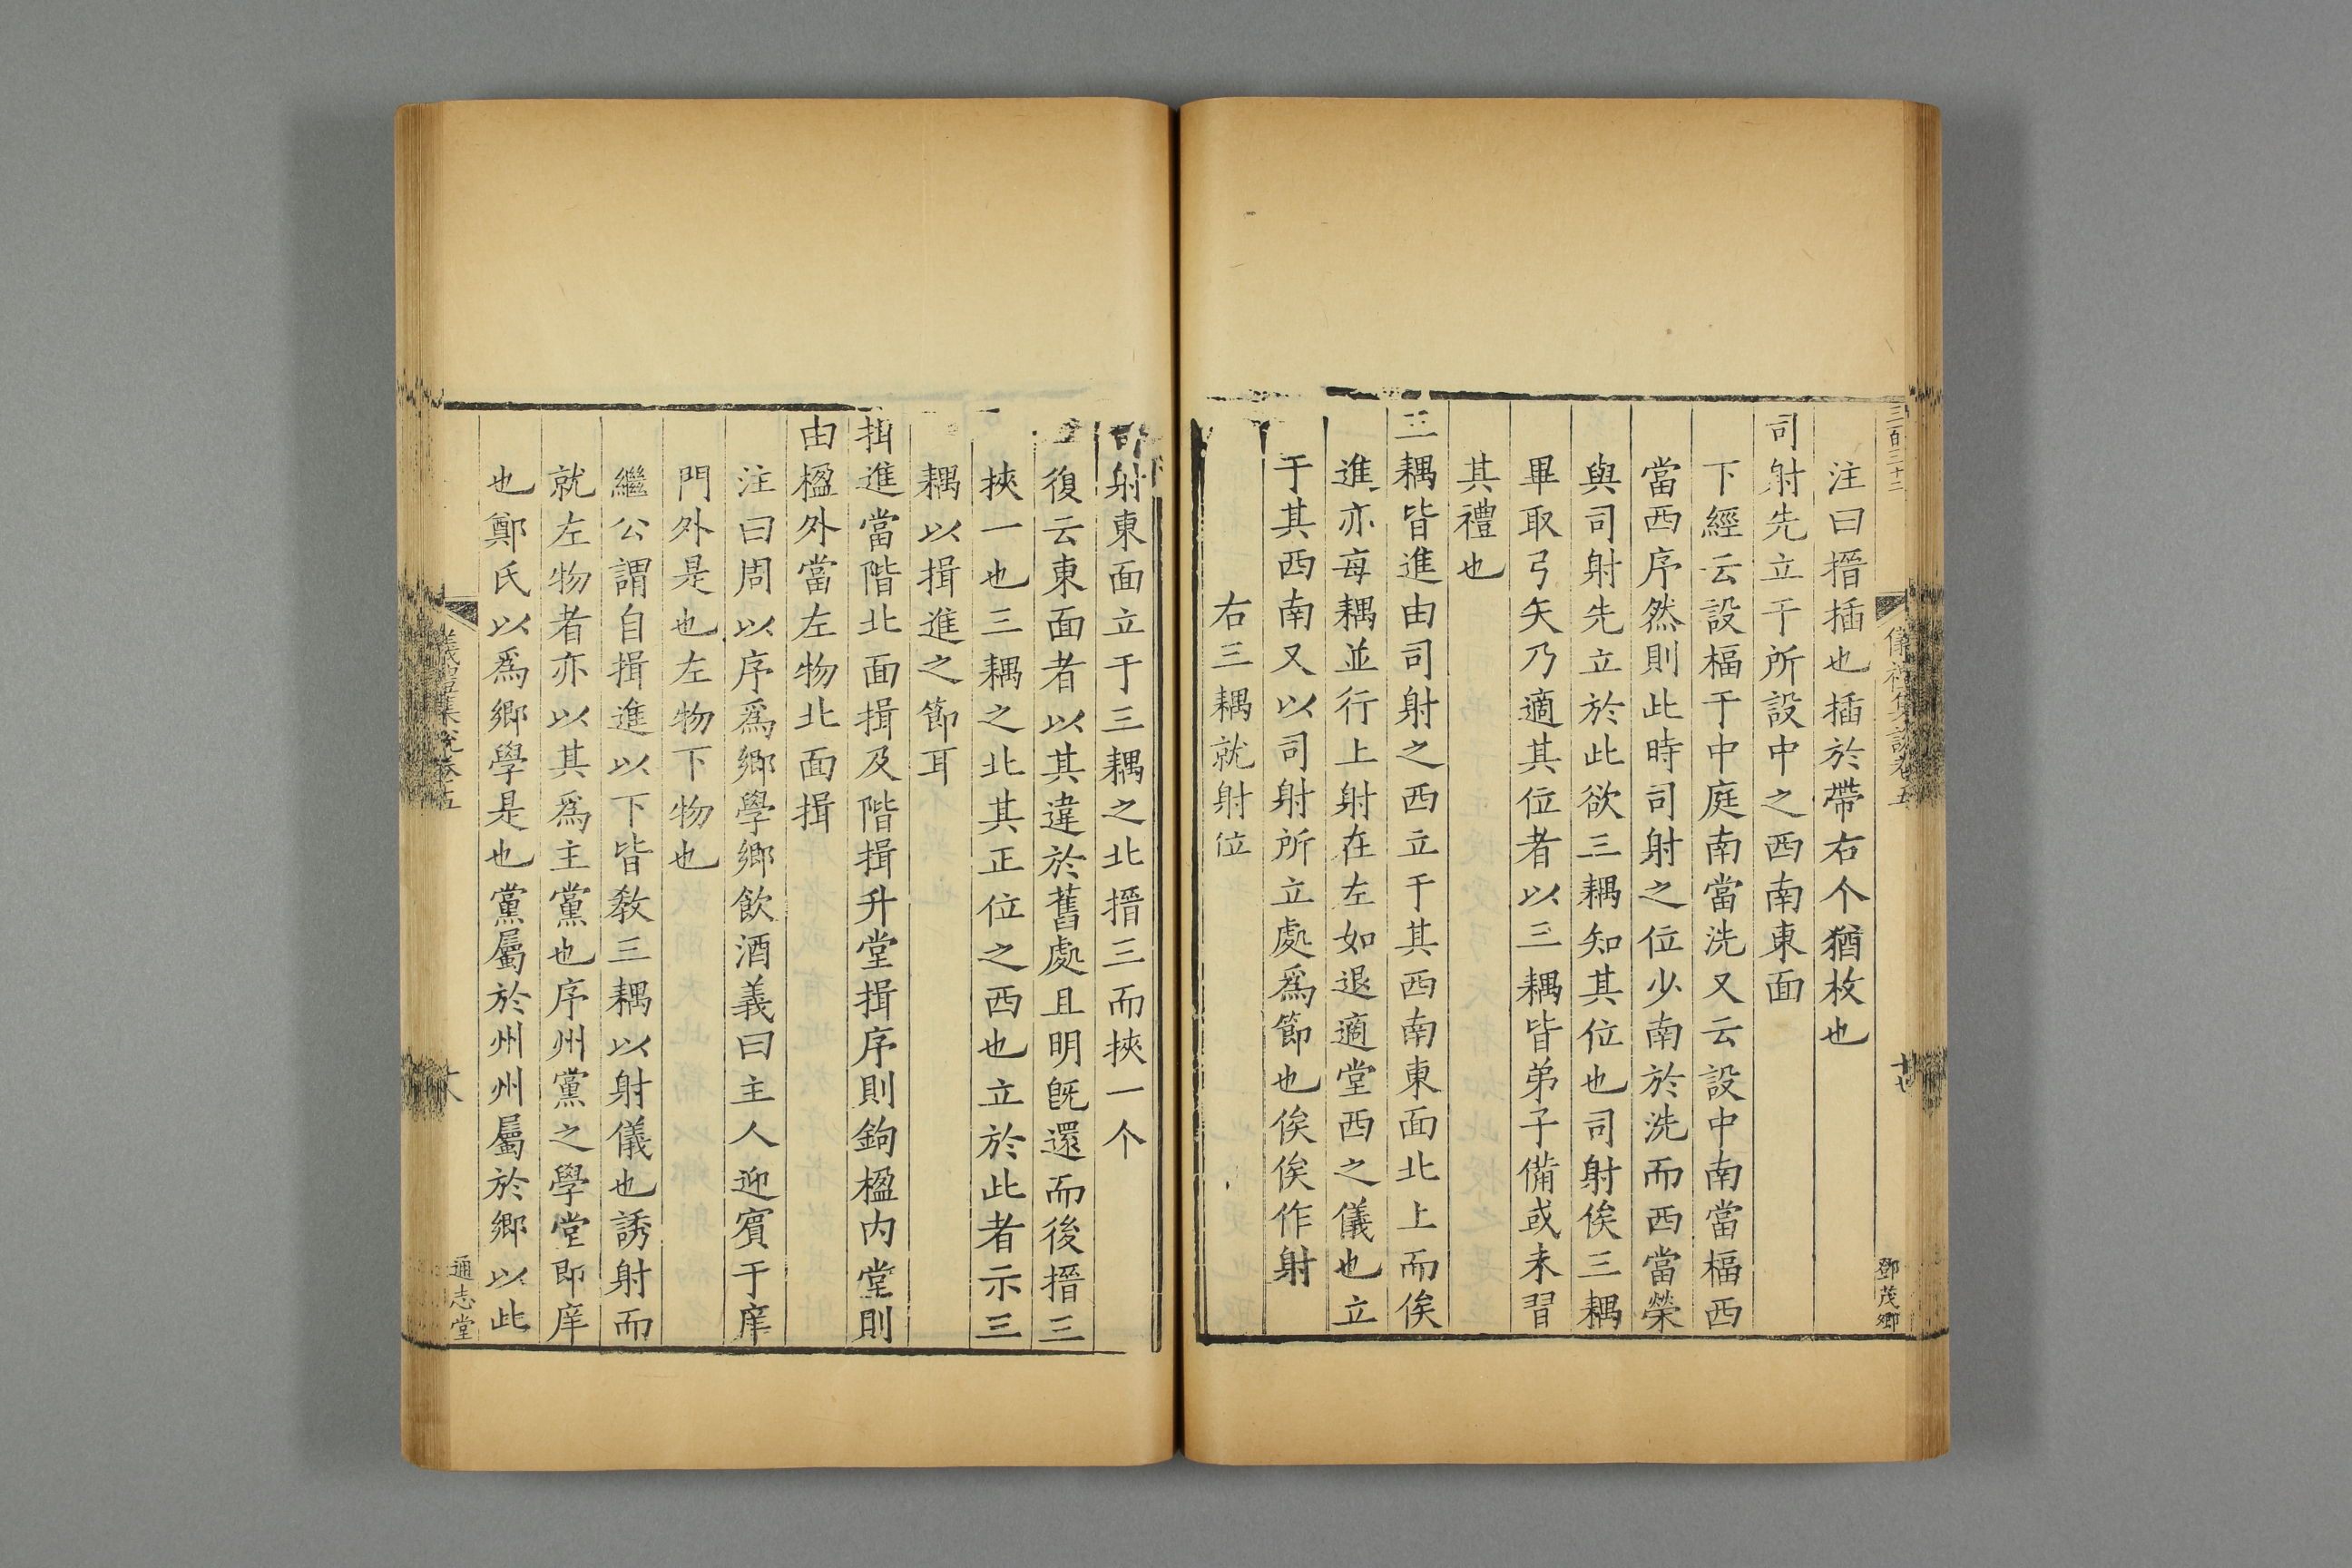 三百三十二
儀禮集說卷五
十七
鄧茂卿
注曰搢插也插於帶右个猶枚也
司射先立于所設中之西南東面
下經云設楅于中庭南當洗又云設中南當楅西
當西序然則此時司射之位少南於洗而西當榮
與司射先立於此欲三耦知其位也司射俟三耦
畢取弓矢乃適其位者以三耦皆弟子備或未習
其禮也
三耦皆進由司射之西立于其西南東面北上而俟
進亦每耦並行上射在左如退適堂西之儀也立
于其西南又以司射所立處爲節也俟俟作射
右三耦就射位
司射東面立于三耦之北搢三而挾一个
復云東面者以其違於舊處且明旣還而後搢三
挾一也三耦之北其正位之西也立於此者示三
耦以揖進之節耳
揖進當階北面揖及階揖升堂揖序則鉤楹内堂則
由楹外當左物北面揖
注曰周以序爲鄉學鄉飲酒義曰主人迎賓于庠
門外是也左物下物也
繼公謂自揖進以下皆敎三耦以射儀也誘射而
就左物者亦以其爲主黨也序州黨之學堂即庠
也鄭氏以爲鄉學是也黨屬於州州屬於鄉以此
儀禮集說卷五
通志堂